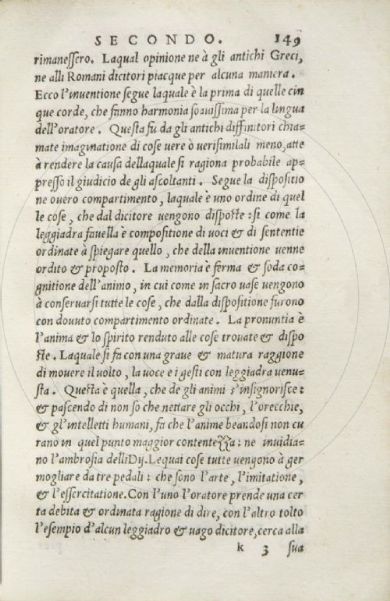 SECONDO. 149
rimanessero. Laqual opinione ne à gli antichi Greci,
ne alli Romani dicitori piacque per alcuna maniera.
Ecco l'inuentione segue laquale è la prima di quelle cin
que corde, che fanno harmonia soauissima per la lingua
dell'oratore. Questa fu da gli antichi diffinitori chia-
mate imaginatione di cose uere ò uerisimilali meno, atte
à rendere la causa dellaquale si ragiona probabile ap-
presso il giudicio de gli ascoltanti. Segue la dispositio
ne ouero compartimento, laquale è uno ordine di quel
le cose, che dal dicitore uengono disposte: si come la
leggiadra fauella è compositione di uoci & di sententie
ordinate à spiegare quello, che della inuentione uenne
ordito & proposto. La memoria è ferma & soda co-
gnitione dell'animo, in cui come in sacro uase uengono
à conseruarsi tutte le cose, che dalla dispositione furono
con douuto compartimento ordinate. La pronuntia è
l'anima & lo spirito renduto alle cose trouate & dispo
ste. Laquale si fa con una graue & matura raggione
di mouere il uolto, la uoce e i gesti con leggiadra uenu-
sta. Questa è quella, che de gli animi s'insignorisce:
& pascendo di non so che nettare gli occhi, l'orecchie,
& gl'intelletti humani, fa che l'anime beandosi non cu
rano in quel punto maggior contentezza: ne inuidia-
no l'ambrosia delli Dij. Lequai cose tutte uengono à ger
mogliare da tre pedali: che sono l'arte, l'imitatione,
& l'essercitatione. Con l'uno l'oratore prende una cer
ta debita & ordinata ragione di dire, con l'altro tolto
l'esempio d'alcun leggiadro & uago dicitore, cerca alla
k 3 sua